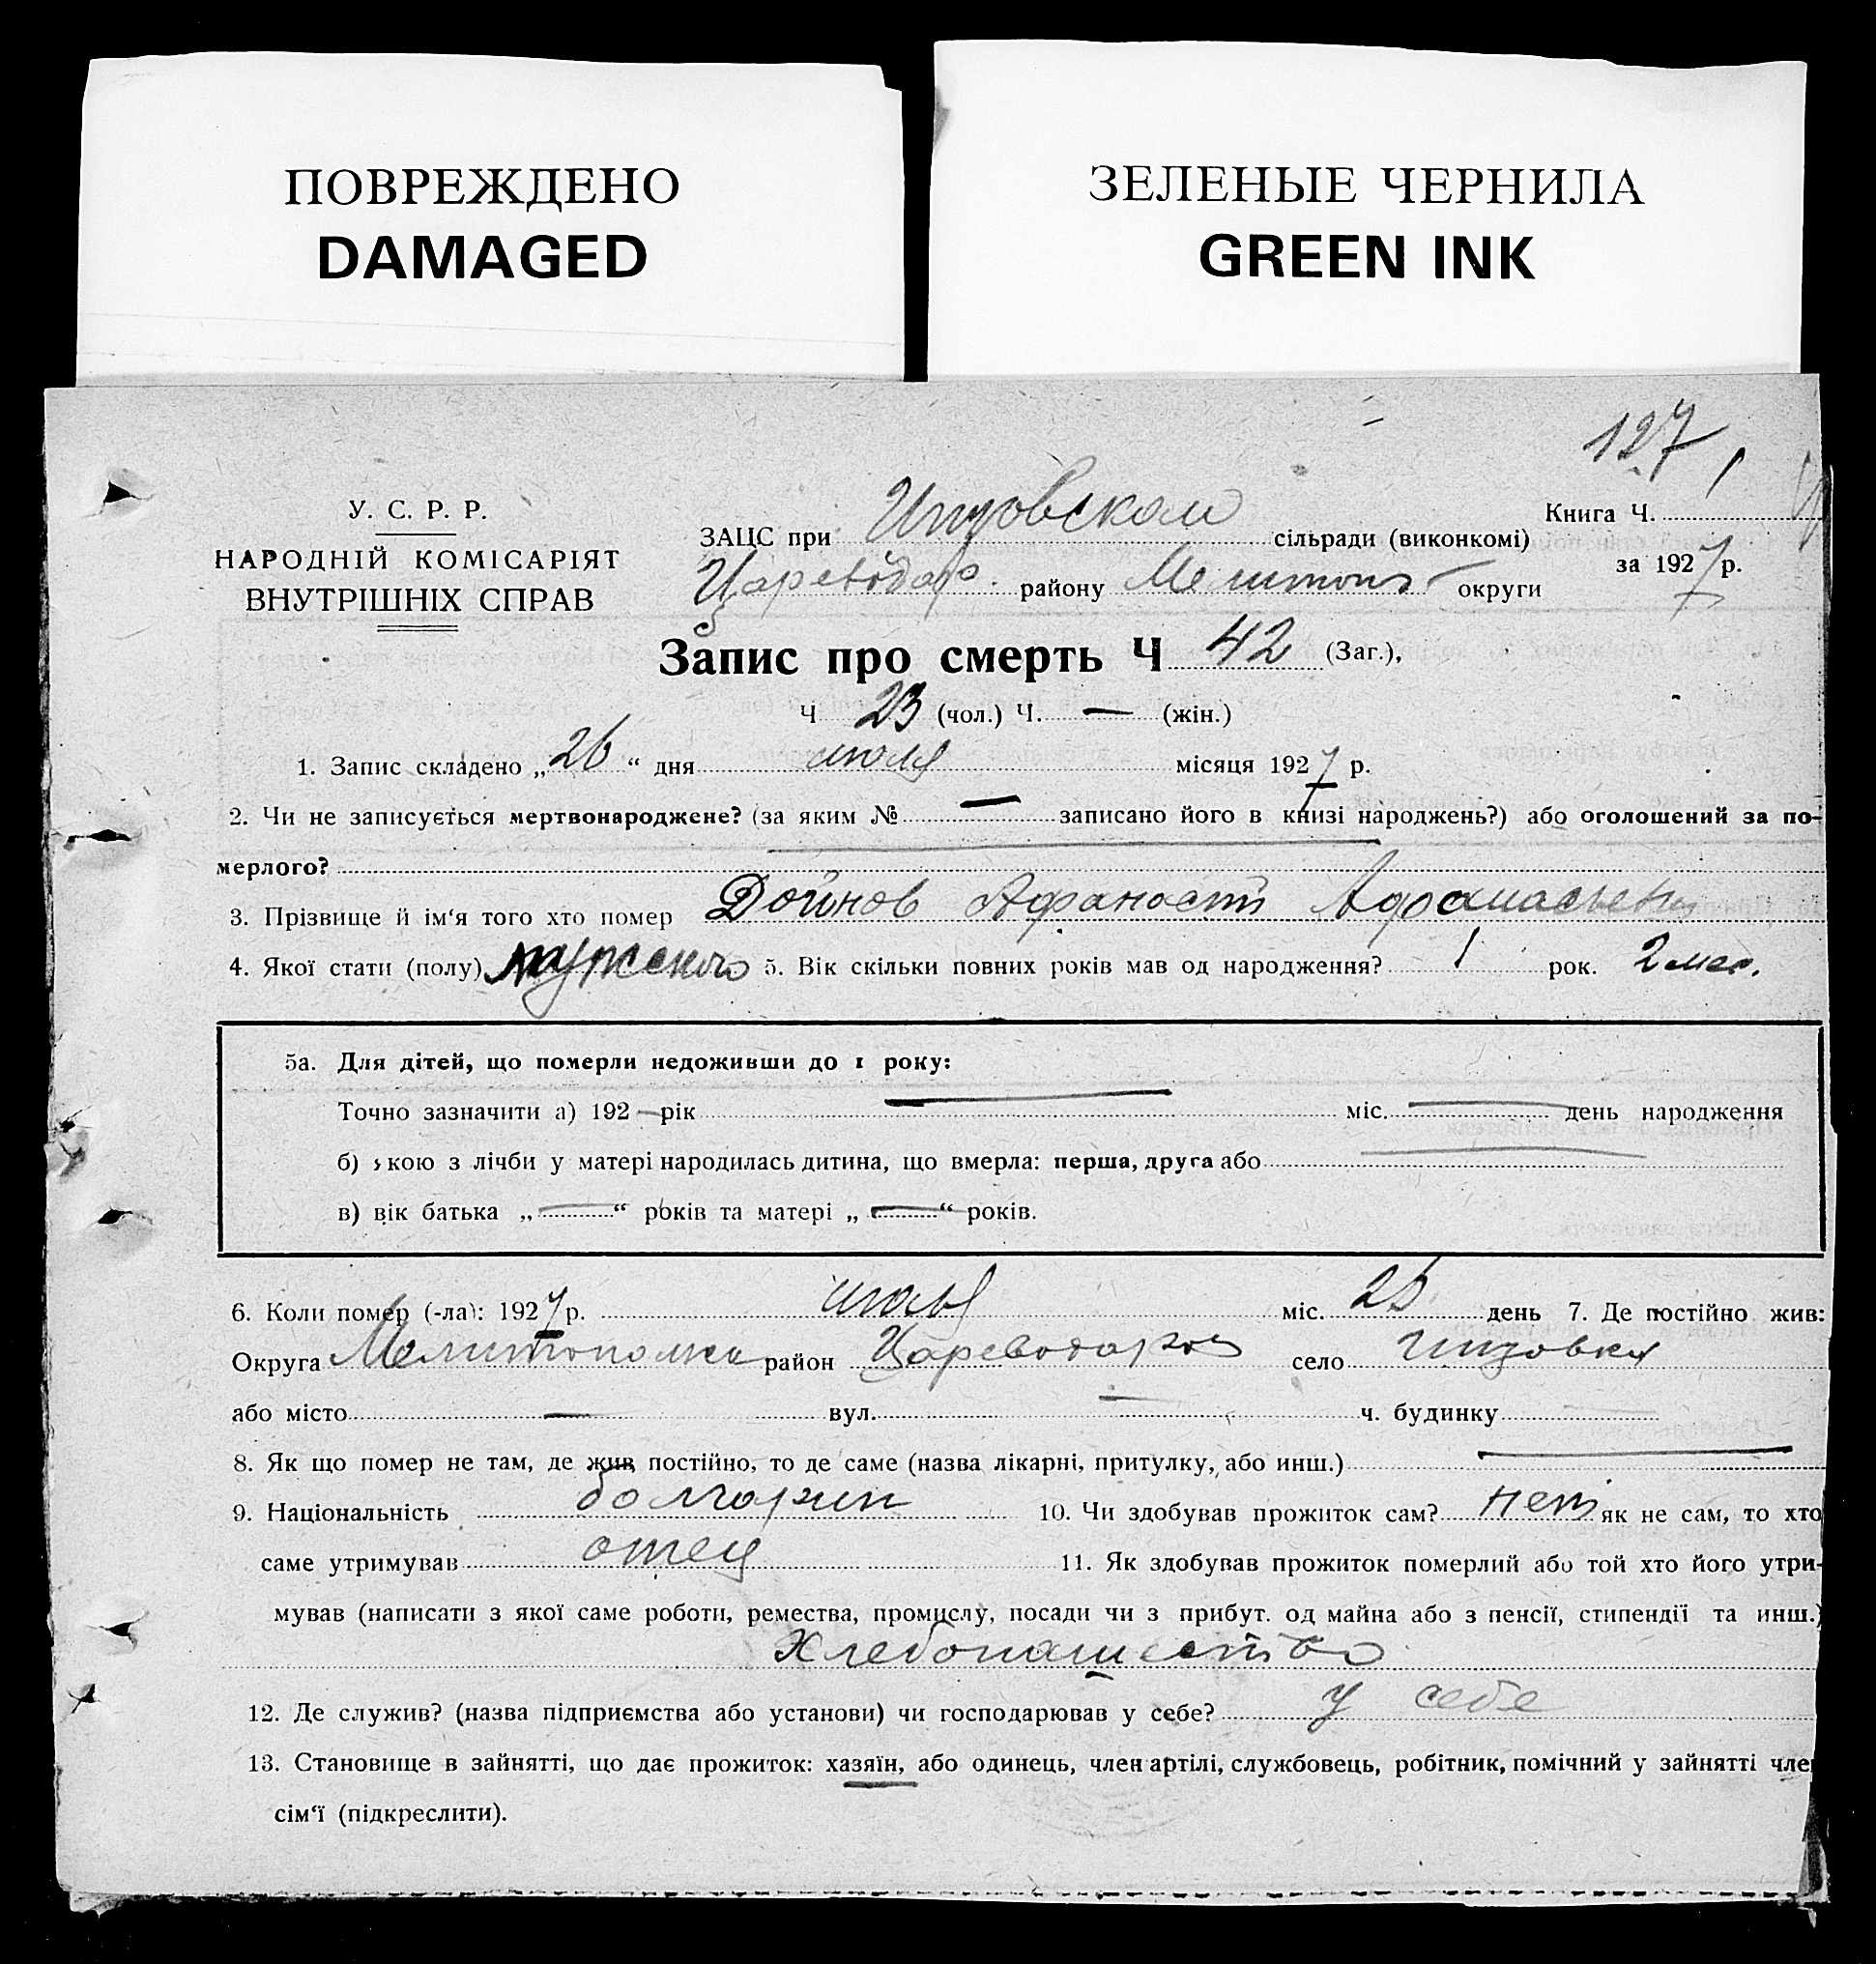 ПОВРЕЖДЕНО
DAMAGED
ЗЕЛЕНЫЕ ЧЕРНИЛА
GREEN INK
127
У. С. Р. Р.
НАРОДНІЙ КОМІСАРІЯТ
ВНУТРІШНІХ СПРАВ
Книга Ч.
за 1927 р.
ЗАЦС при сільради (виконкомі)
Цареводар. району Мелитоп округи
Запис про смерть Ч 42 (Заг.),
Ч 23 (чол.) Ч. — (жін.)
1. Запис складено „26“ дня июля місяця 1927 р.
2. Чи не записується мертвонароджене? (за яким № — записано його в книзі народжень?) або оголошений за по-
мерлого?
3. Прізвище й ім'я того хто помер Дойнов Афанасий Афанасьеви
4. Якої стати (полу) мужского 5. Вік скільки повних років мав од народження? 1 рок. 2 мес.
5а. Для дітей, що померли недоживши до 1 року:
Точно зазначити а) 192 — рік — міс. — день народження
б) якою з лічби у матері народилась дитина, що вмерла: перша, друга або —
в) вік батька „—“ років та матері „—“ років.
6. Коли помер (-ла): 1927 р. июля міс. день 7. Де постійно жив:
Округа Мелитопольск район Цареводарск село
або місто — вул. — ч. будинку
8. Як що помер не там, де жив постійно, то де саме (назва лікарні, притулку, або инш.) —
9. Національність болгарин 10. Чи здобував прожиток сам? нет як не сам, то хто
саме утримував отец 11. Як здобував прожиток померлий або той хто його утри-
мував (написати з якої саме роботи, ремества, промислу, посади чи з прибут. од майна або з пенсії, стипендії та инш.)
Хлебопашество
12. Де служив? (назва підприємства або установи) чи господарював у себе? у себе
13. Становище в зайнятті, що дає прожиток: хазяїн, або одинець, член артілі, службовець, робітник, помічний у зайнятті член
сім'ї (підкреслити).